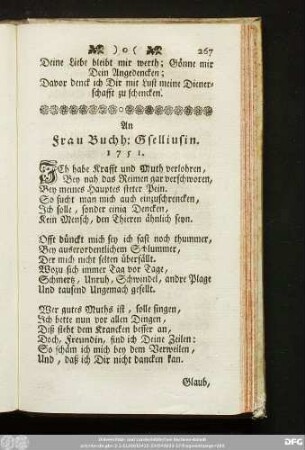 )o( 267
Deine Liebe bleibt mir werth; Gönne mir
Dein Angedencken;
Davor denck ich Dir mit Lust meine Diener-
schafft zu schencken.
An
Frau Buchh: Gselliusin.
1751.
ICh habe Krafft und Muth verlohren,
Bey nah das Reimen gar verschworen,
Bey meines Hauptes steter Pein.
So sucht man mich auch einzuschrencken,
Ich solle, sonder einig Dencken,
Kein Mensch, den Thieren ähnlich seyn.
Offt dünckt mich sey ich fast noch thummer,
Bey ausserordentlichem Schlummer,
Der mich nicht selten überfällt.
Wozu sich immer Tag vor Tage,
Schmertz, Unruh, Schwindel, andre Plage
Und tausend Ungemach gesellt.
Wer gutes Muths ist, solle singen,
Ich bette nun vor allen Dingen,
Diß steht dem Krancken besser an,
Doch, Freundin, sind ich Deine Zeilen:
So schäm ich mich bey dem Verweilen,
Und, daß ich Dir nicht dancken kan.
Glaub,